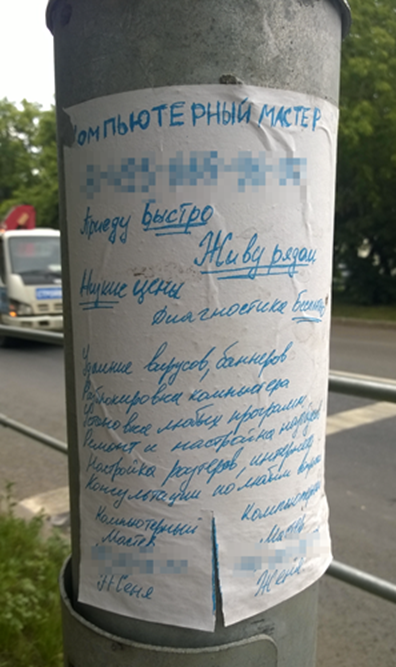 КОМПЬЮТЕРНЫЙ МАСТЕР
Приеду Быстро
Живу рядом
Низкие цены
Диагностика Бесплатно
Удаление вирусов, баннеров
Разблокировка компьютера
Установка любых программ
Ремонт и настройка
Настройка роутеров, интернет
Консультации по любым
Компьютерный
Мастер
Женя
Компьютерный
Мастер
Женя